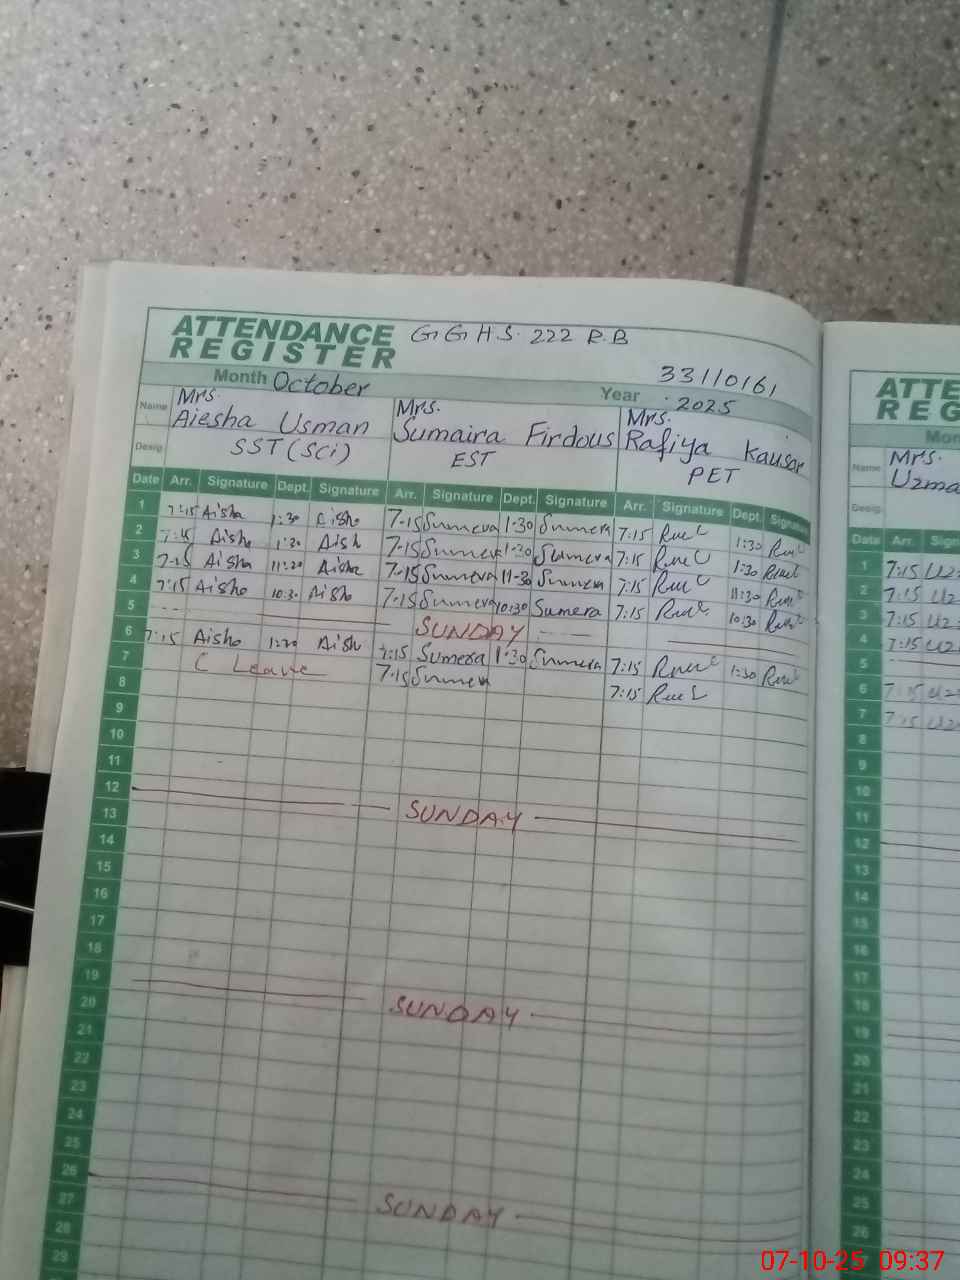 ATTENDANCE REGISTER G G H S. 222 R.B
33110161
Month October Year 2025
Name Mrs. Aiesha Usman Mrs. Sumaira Firdous Mrs. Rafiya Kausar
Desig. SST (Sci) EST PET
Date Arr. Signature Dept. Signature Arr. Signature Dept. Signature Arr. Signature Dept. Signature
1 7:15 Aisha 1:30 Aisha 7-15 Sumera 1-30 Sumera 7:15 1:30
2 7:15 Aisha 1:30 Aish 7-15 Sumera 1-30 Sumera 7:15 1:30
3 7:15 Aisha 11:30 Aisha 7-15 Sumera 11-30 Sumera 7:15 11:30
4 7:15 Aisha 10:30 Aisha 7-15 Sumera 10:30 Sumera 7:15 10:30
5 SUNDAY
6 7:15 Aisha 1:30 Aish 7:15 Sumera 1-30 Sumera 7:15 1:30
7 C Leave 7-15 Sumera 7:15
8
9
10
11
12 SUNDAY
13
14
15
16
17
18
19 SUNDAY
20
21
22
23
24
25
26 SUNDAY
27
28
29
ATTE
REG
Mon
Name Mrs.
Uzma
Desig.
Date Arr. Sign
1 7:15
2 7:15
3 7:15
4 7:15
5
6 7:15
7 7:15
8
9
10
11
12
13
14
15
16
17
18
19
20
21
22
23
24
25
26
07-10-25 09:37